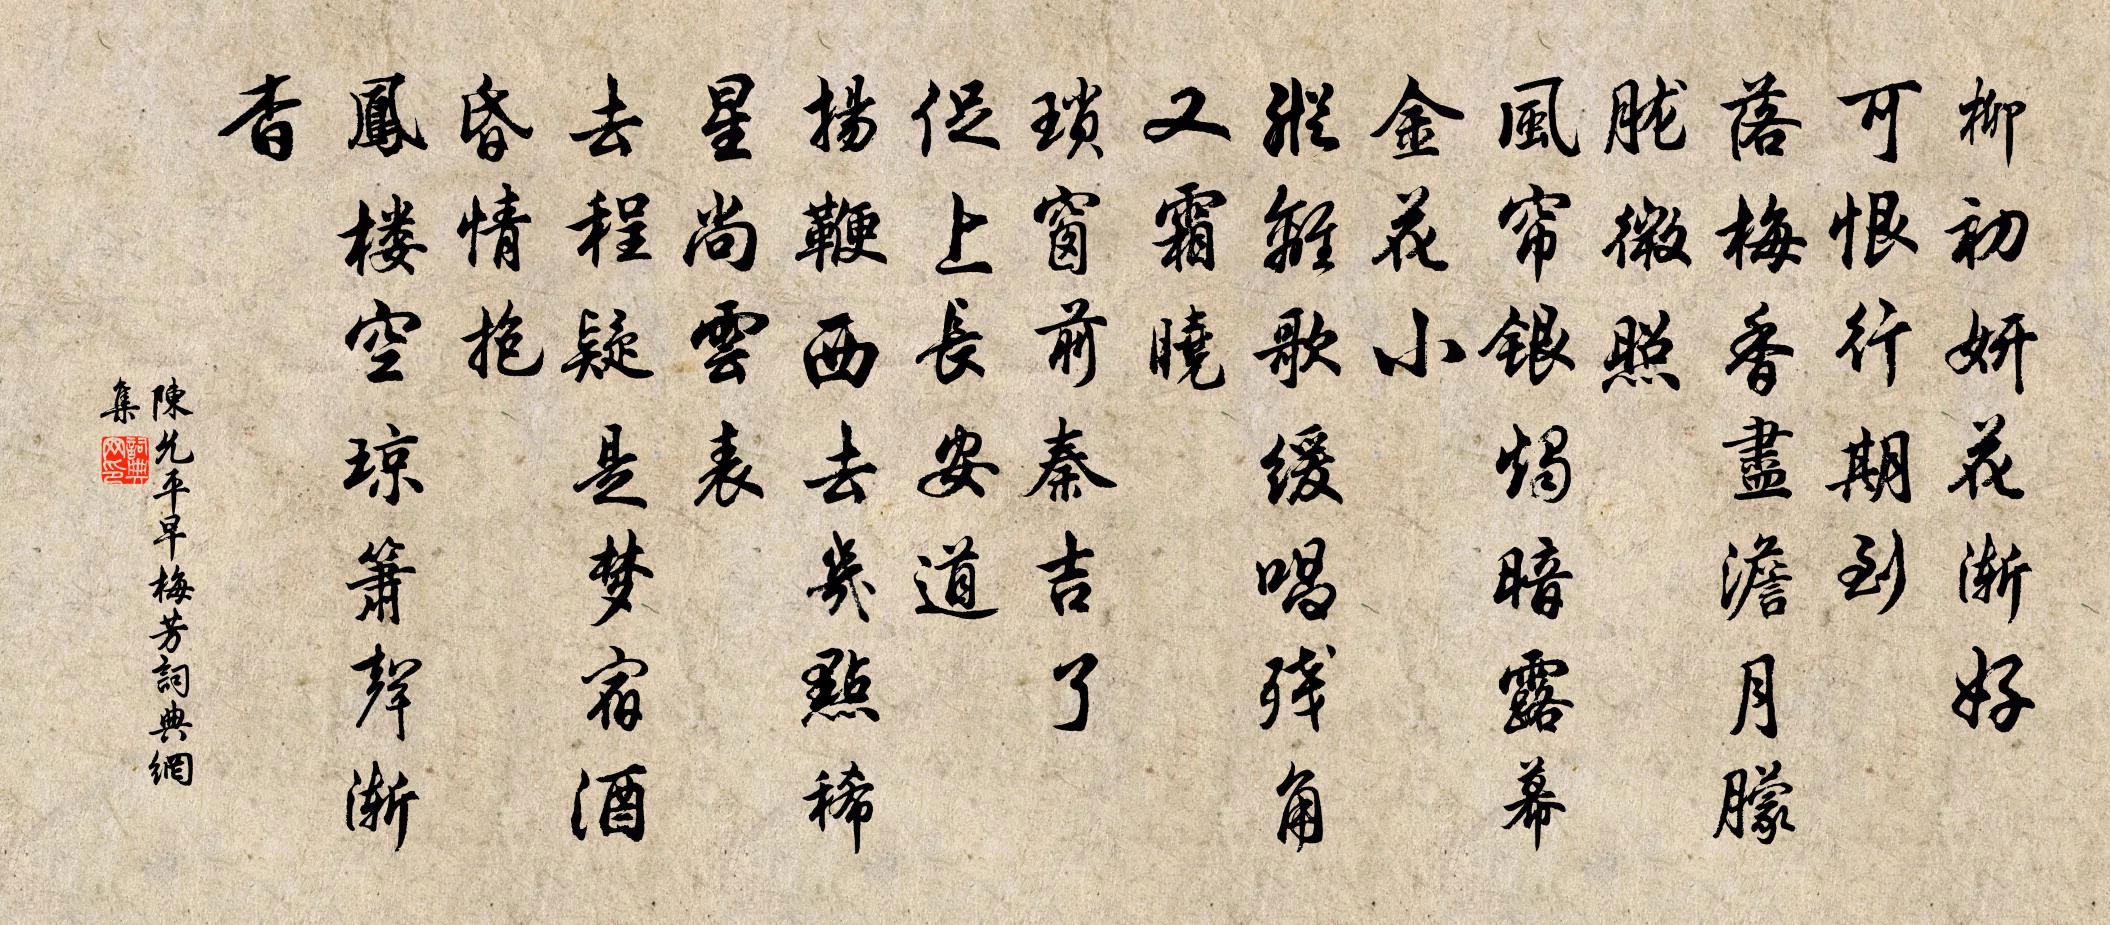 柳初妍花漸好
可恨行期到
落梅香盡澹月朦
胧微照
風帘銀燭暗露幕
金花小
縱離歌缓唱残角
又霜曉
瑣窗前秦吉了
促上長安道
揚鞭西去幾點稀
星尚雲表
去程疑是梦宿酒
昏情抱
鳳楼空琼箫聲漸
杳
陳允平早梅芳詞典網
集
詞典
网印